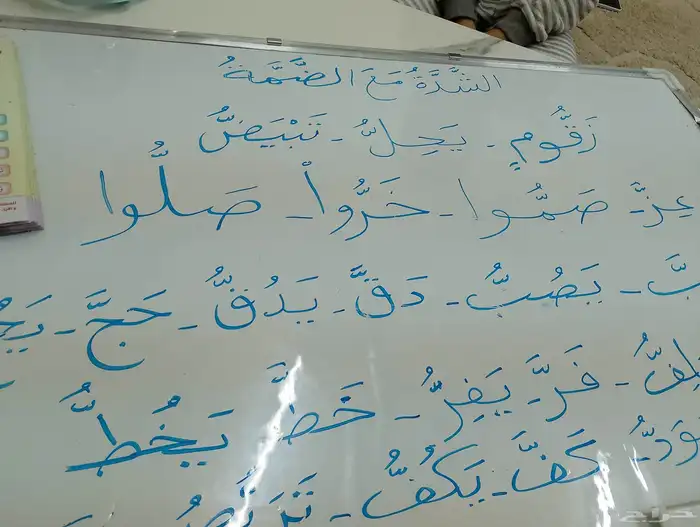 الشَّدَّةُ مَعَ الضَّمَّةُ
زَقُّومٍ - يَحِلُّ - تَبْيَضُّ
عِزَّ - صَمُّوا - خَرُّواْ - صَلُّوا
بَّ - يَصُبُّ - دَقَّ - يَدُقُّ - حَجَّ -
فَرَّ - يَفِرُّ - خَطَّ يَخُطُّ
وَدُّ - كَفَّ - يَكُفُّ -
حراج